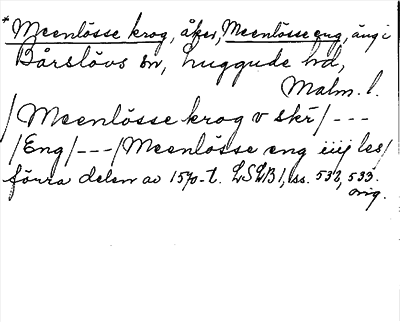 *Meenlösse krog, åker, Meenlösse eng, äng i
Bårslövs sn, Luggude hd,
Malm. l.
/Meenlösse krog v skr/ ---
/Eng/---/Meenlösse eng iiij les/
förra delen av 1570-t. LSLB 1, ss. 532, 533.
orig.